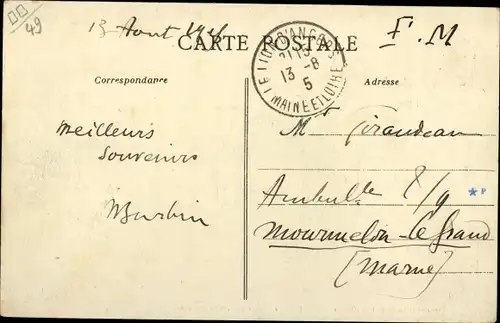 49
13 Aout
F. M
CARTE POSTALE
LE LION D'ANGERS
13 - 8
5
MAINE ET LOIRE
Correspondance
Adresse
Meilleurs
Souvenirs
M Girandeau
Ambulce 8/9
Mourmelon-le Grand
(Marne)